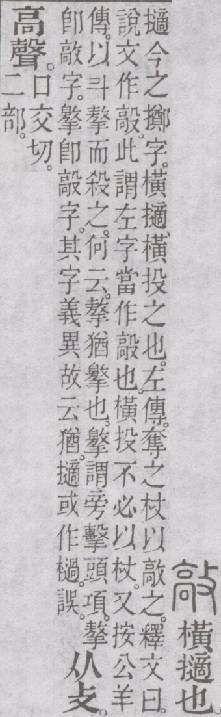 敲橫擿也。
擿今之擲字。橫擿、橫投之也。左傳。奪之杖以敲之。釋文曰。
說文作毃。此謂左字當作毃也。橫投不必以杖。又按公羊
傳。以斗摮而殺之。何云。摮猶擊也。擊謂旁擊頭項。摮
卽敲字。擊卽毃字。其字義異故云猶。擿或作檛。誤。
从攴。
高聲。
口交切。
二部。